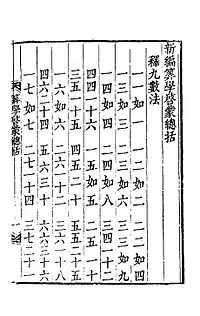 新編筭學啓蒙總括
釋九數法
一一如一　一二如二　二二如四
一三如三　二三如六　三三如九
一四如四　二四如八　三四一十二
四四一十六　一五如五　二五一十
三五一十五　四五二十　五五二十五
一六如六　二六一十二　三六一十八
四六二十四　五六三十　六六三十六
一七如七　二七一十四　三七二十一
筭學啓蒙總括